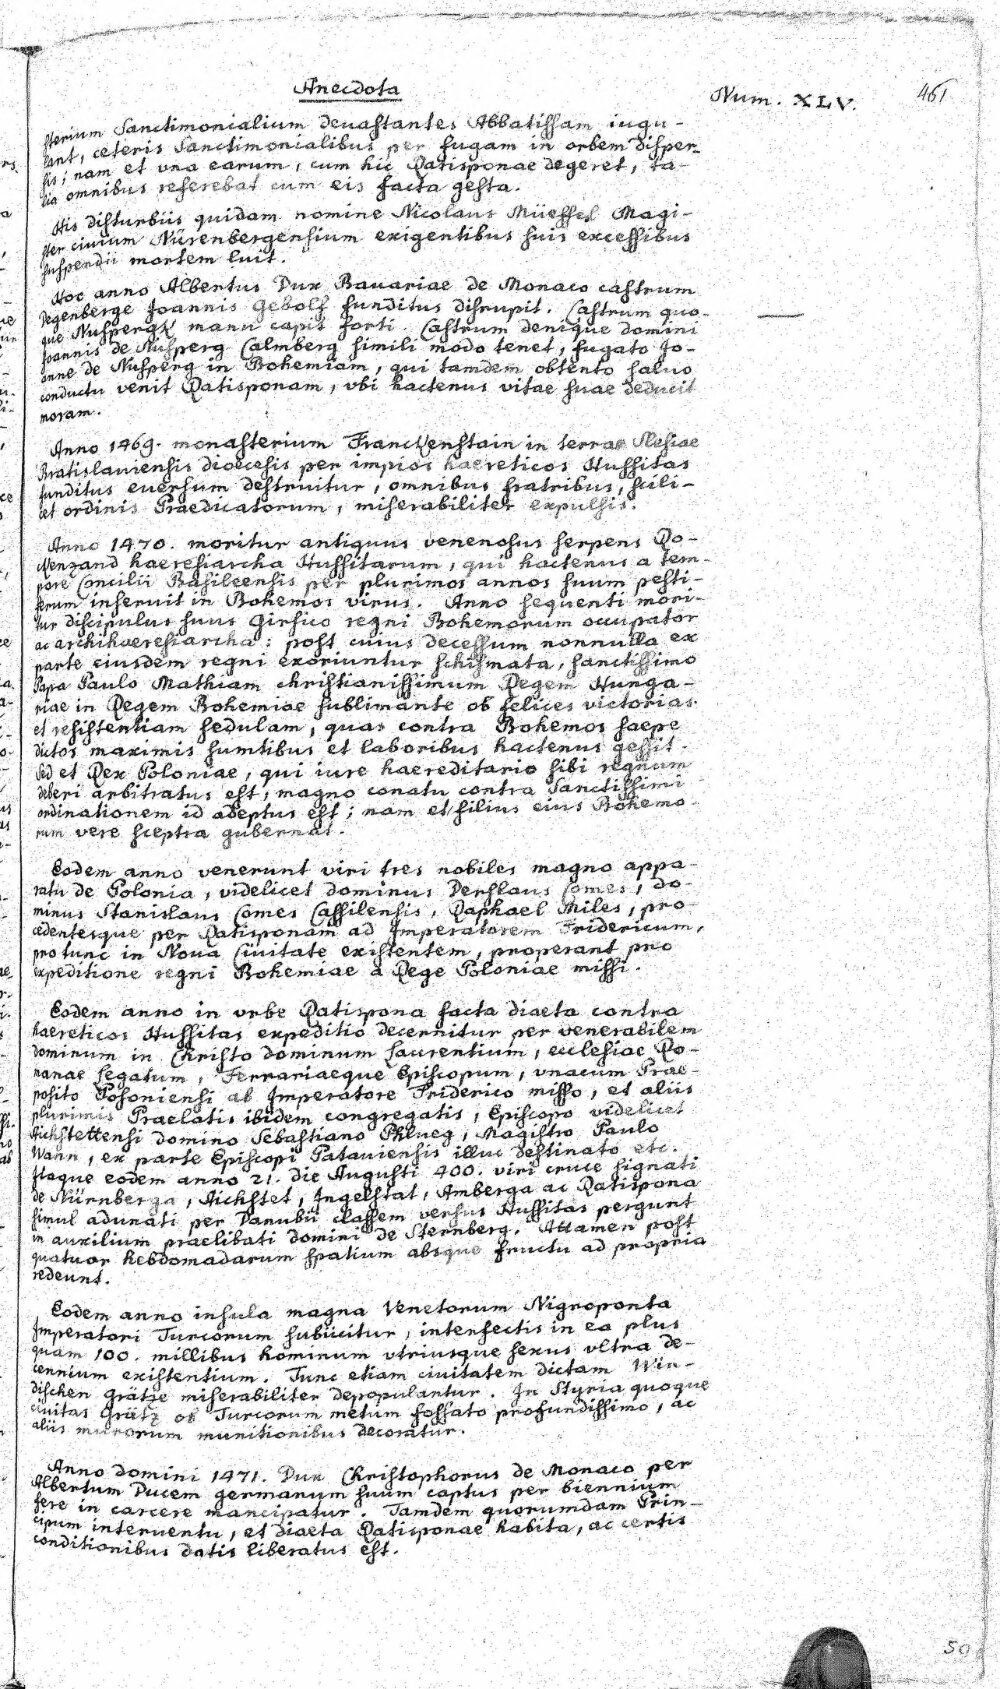 Anecdota
Num. XLV.
461
sterium Sanctimonialium devastantes Abbatissam iugu-
lant, ceteris Sanctimonialibus per fugam in orbem disper-
sis; nam et vna earum, cum hic Ratisponae degeret, ta-
lia omnibus referebat cum eis facta gesta.
His disturbiis quidam nomine Nicolaus Müessel Magi-
ster civium Nürenbergensium exigentibus suis excessibus
suspendii mortem luit.
Hoc anno Albertus Dux Bavariae de Monaco castrum
Degenberge Joannis Gebolf funditus disrupit. Castrum quo-
que Nusperg manu capit forti. Castrum denique domini
Joannis de Nusperg Calmberg simili modo tenet, fugato Jo-
anne de Nusperg in Bohemiam, qui tamdem obtento saluo
conductu venit Ratisponam, vbi hactenus vitae suae deducit
moram.
Anno 1469. monasterium Franckenstain in terrae Slesiae
Bratislauiensis dioecesis per impios haereticos Hussitas
funditus euersum destruitur, omnibus fratribus, scili-
cet ordinis Praedicatorum, miserabiliter expulsis.
Anno 1470. moritur antiquus venenosus serpens Ro-
kenzand haeresiarcha Hussitarum, qui hactenus a tem-
pore Concilii Basileensis per plurimos annos suum pesti-
ferum inseruit in Bohemos virus. Anno sequenti mori-
tur discipulus suus Girsico regni Bohemorum occupator
ac archihaeresiarcha: post cuius decessum nonnulla ex
parte eiusdem regni exoriuntur schismata, sanctissimo
Papa Paulo Mathiam christianissimum Regem Hunga-
riae in Regem Bohemiae sublimante ob felices victorias
et resistentiam sedulam, quas contra Bohemos saepe
dictos maximis sumtibus et laboribus hactenus gessit.
Sed et Rex Poloniae, qui iure haereditario sibi regnum
deberi arbitratus est, magno conatu contra Sanctissimi
ordinationem id adeptus est; nam et filius eius Bohemo-
rum vere sceptra gubernat.
Eodem anno venerunt viri tres nobiles magno appa-
ratu de Polonia, videlicet dominus Derslaus Comes, do-
minus Stanislaus Comes Cassilensis, Raphael Miles, pro-
cedentesque per Ratisponam ad Imperatorem Fridericum,
pro tunc in Nova Ciuitate existentem, properant pro
expeditione regni Bohemiae a Rege Poloniae missi.
Eodem anno in vrbe Ratispona facta diaeta contra
haereticos Hussitas expeditio decernitur per venerabilem
dominum in Christo dominum Laurentium, ecclesiae Ro-
manae Legatum, Ferrariaeque Episcopum, vnacum Prae-
posito Posoniensi ab Imperatore Friderico misso, et aliis
plurimis Praelatis ibidem congregatis, Episcopo videlicet
Aichstettensi domino Sebastiano Phlueg, Magistro Paulo
Wann, ex parte Episcopi Patauiensis illuc destinato etc.
Itaque eodem anno 21. die Augusti 400. viri cruce signati
de Nürnberga, Aichstet, Ingelstat, Amberga ac Ratispona
simul adunati per Danubii classem versus Hussitas pergunt
in auxilium praelibati domini de Sternberg. Attamen post
quatuor hebdomadarum spatium absque fructu ad propria
redeunt.
Eodem anno insula magna Venetorum Nigroponta
Imperatori Turcorum subiicitur, interfectis in ea plus
quam 100. millibus hominum vtriusque sexus vltra de-
cennium existentium. Tunc etiam civitatem dictam Win-
dischen grätze miserabiliter depopulantur. In Styria quoque
civitas Grätz ob Turcorum metum fossato profundissimo, ac
aliis murorum munitionibus decoratur.
Anno domini 1471. Dux Christophorus de Monaco per
Albertum Ducem germanum suum captus per biennium
fere in carcere mancipatur. Tamdem quorumdam Prin-
cipum interuentu, et diaeta Ratisponae habita, ac certis
conditionibus datis liberatus est.
50